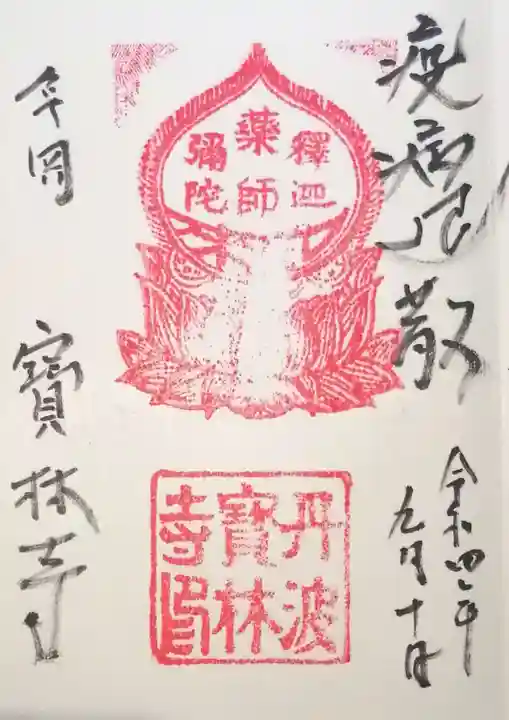 疫病退散
令和四年
九月十日
釋迦
薬師
彌陀
丹波
寶林
寺印
寶林寺